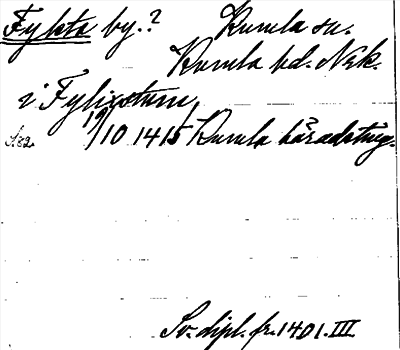 Fylsta by.? Kumla sn.
Kumla hd. Näk.
i Fylixstum
S. 82. 19/10 1415 Kumla häradsting.
Sv. dipl. fr. 1401. III